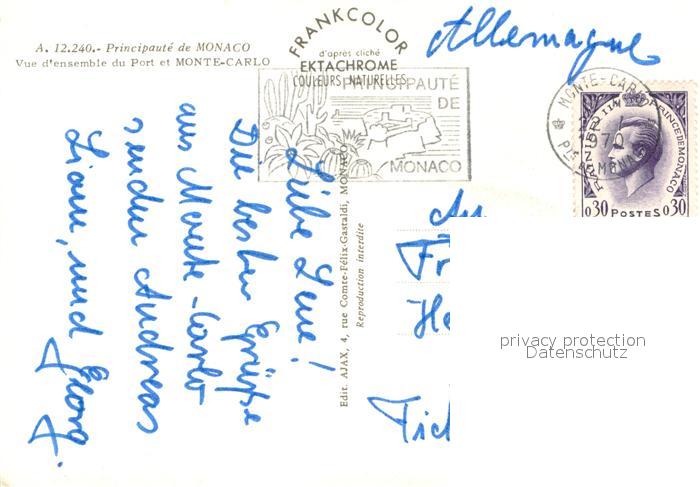 A. 12.240.- Principauté de MONACO
Vue d'ensemble du Port et MONTE-CARLO
FRANKCOLOR
d'après cliché
EKTACHROME
COULEURS NATURELLES
PRINCIPAUTÉ
DE
MONACO
Allemagne
MONTE-CARLO
RAINIER III PRINCE DE MONACO
0.30 POSTES 0.30
Liebe Lene!
Die besten Grüße
aus Monte-Carlo
senden Andreas
Liane, und Georg.
Edit. AJAX, 4, rue Comte-Félix-Gastaldi, MONACO
Reproduction interdite
An
Fr
He
privacy protection
Datenschutz